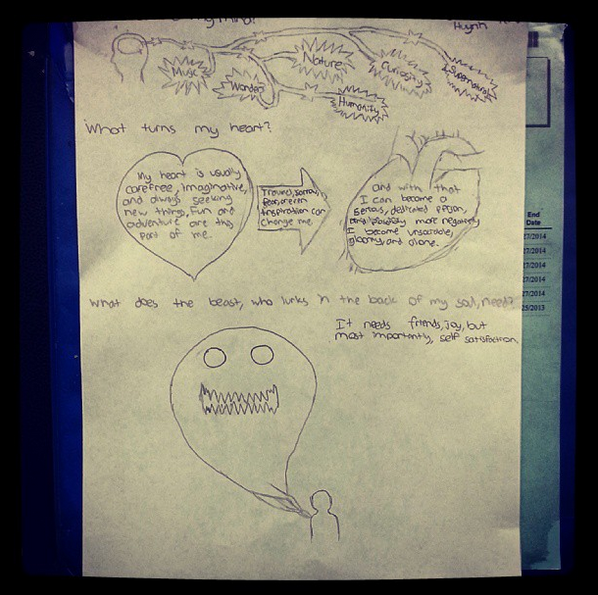 my mind?
Huynh
Music
Nature
Curiosity
Supernatural
Wonder
Humanity
What turns my heart?
My heart is usually
carefree, imaginative,
and always seeking
new things, fun and
adventure are this
part of me.
sorrow,
fear, or even
inspiration can
change me.
and with that
I can become a
serious, dedicated person,
and possibly more negatively
I become unsociable,
gloomy, and alone.
What does the beast, who lurks in the back of my soul, need?
It needs friends, joy, but
most importantly, self satisfaction.
End
Date
27/2014
27/2014
27/2014
27/2014
25/2013